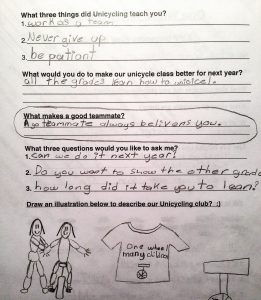 What three things did Unicycling teach you?
1. work as a team
2. Never give up
3. be patiant
What would you do to make our unicycle class better for next year?
all the grades lean how to
What makes a good teammate?
teammate always belivens you.
What three questions would you like to ask me?
1. can we do it next year!
2. Do you want to show the other grade
3. how long did it take you to lean?
Draw an illustration below to describe our Unicycling club? :)
One wheel
many